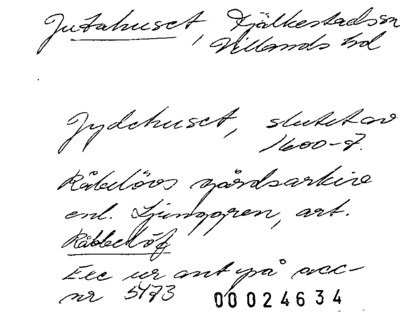 Jutahuset, Fjälkestads sn
Villands hd
Jydehuset, slutet av
1600-t.
Råbelövs gårdsarkiv
enl. Ljunggren, art.
Råbbelöf
Exc ur ant på acc-
nr 5473 00024634